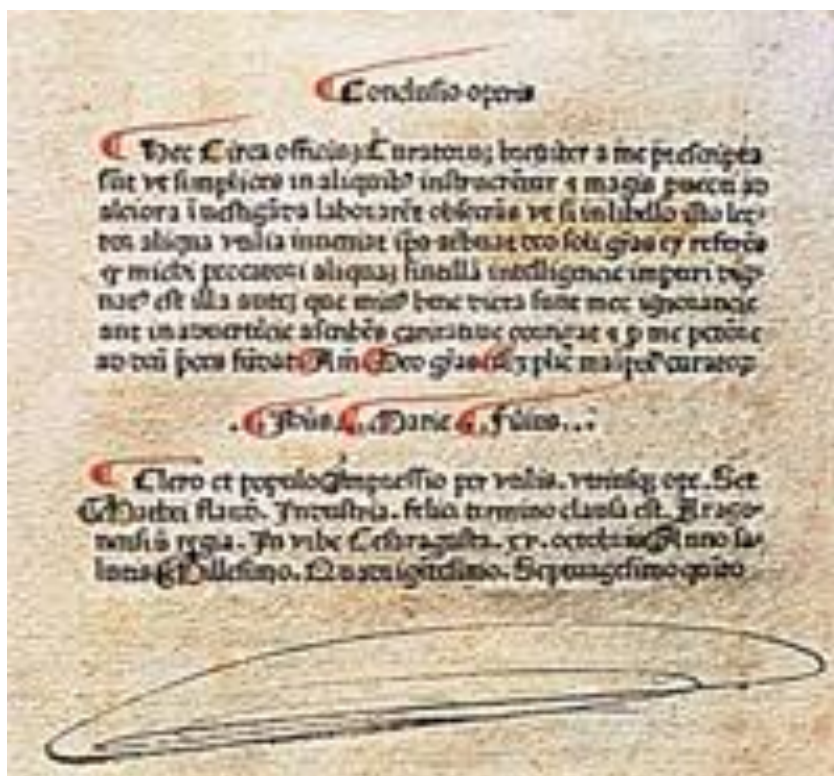 Conclusio operis
Hec Circa officiuz Curatoruz breuiter a me prescripta
sūt vt simplices in aliquibꝰ instruerētur ⁊ magis prouecti ad
alciora inuestigāda laborarēt obsecrās vt si in libello isto lec-
tor aliqua vtilia inueniat ip̄o debitas deo soli gr̄as ⁊ referēs
⁊ michi peccatori aliquaz intelligencie
est illa autez que minꝰ bene dicta sunt mee ignorancie
aut inaduertēcie ascribēs caritatiue corrigat ⁊ ꝓ me peccatore
ad deū p̄ces fūdat Amē Deo gr̄as Explic̄ manipꝰ curatoꝝ
. Ihūs . Marie . Filius . . .
Clero et populo Impressio per vtilis . vtriusqꝫ ope . Sct
Mathei flādri . Industria . felici termino clausa est . Arago-
nensiū regia . In vrbe Cesaragusta . xv . octobris Anno sa-
lutis Millesimo . Quatrigētesimo . Septuagesimo quīto